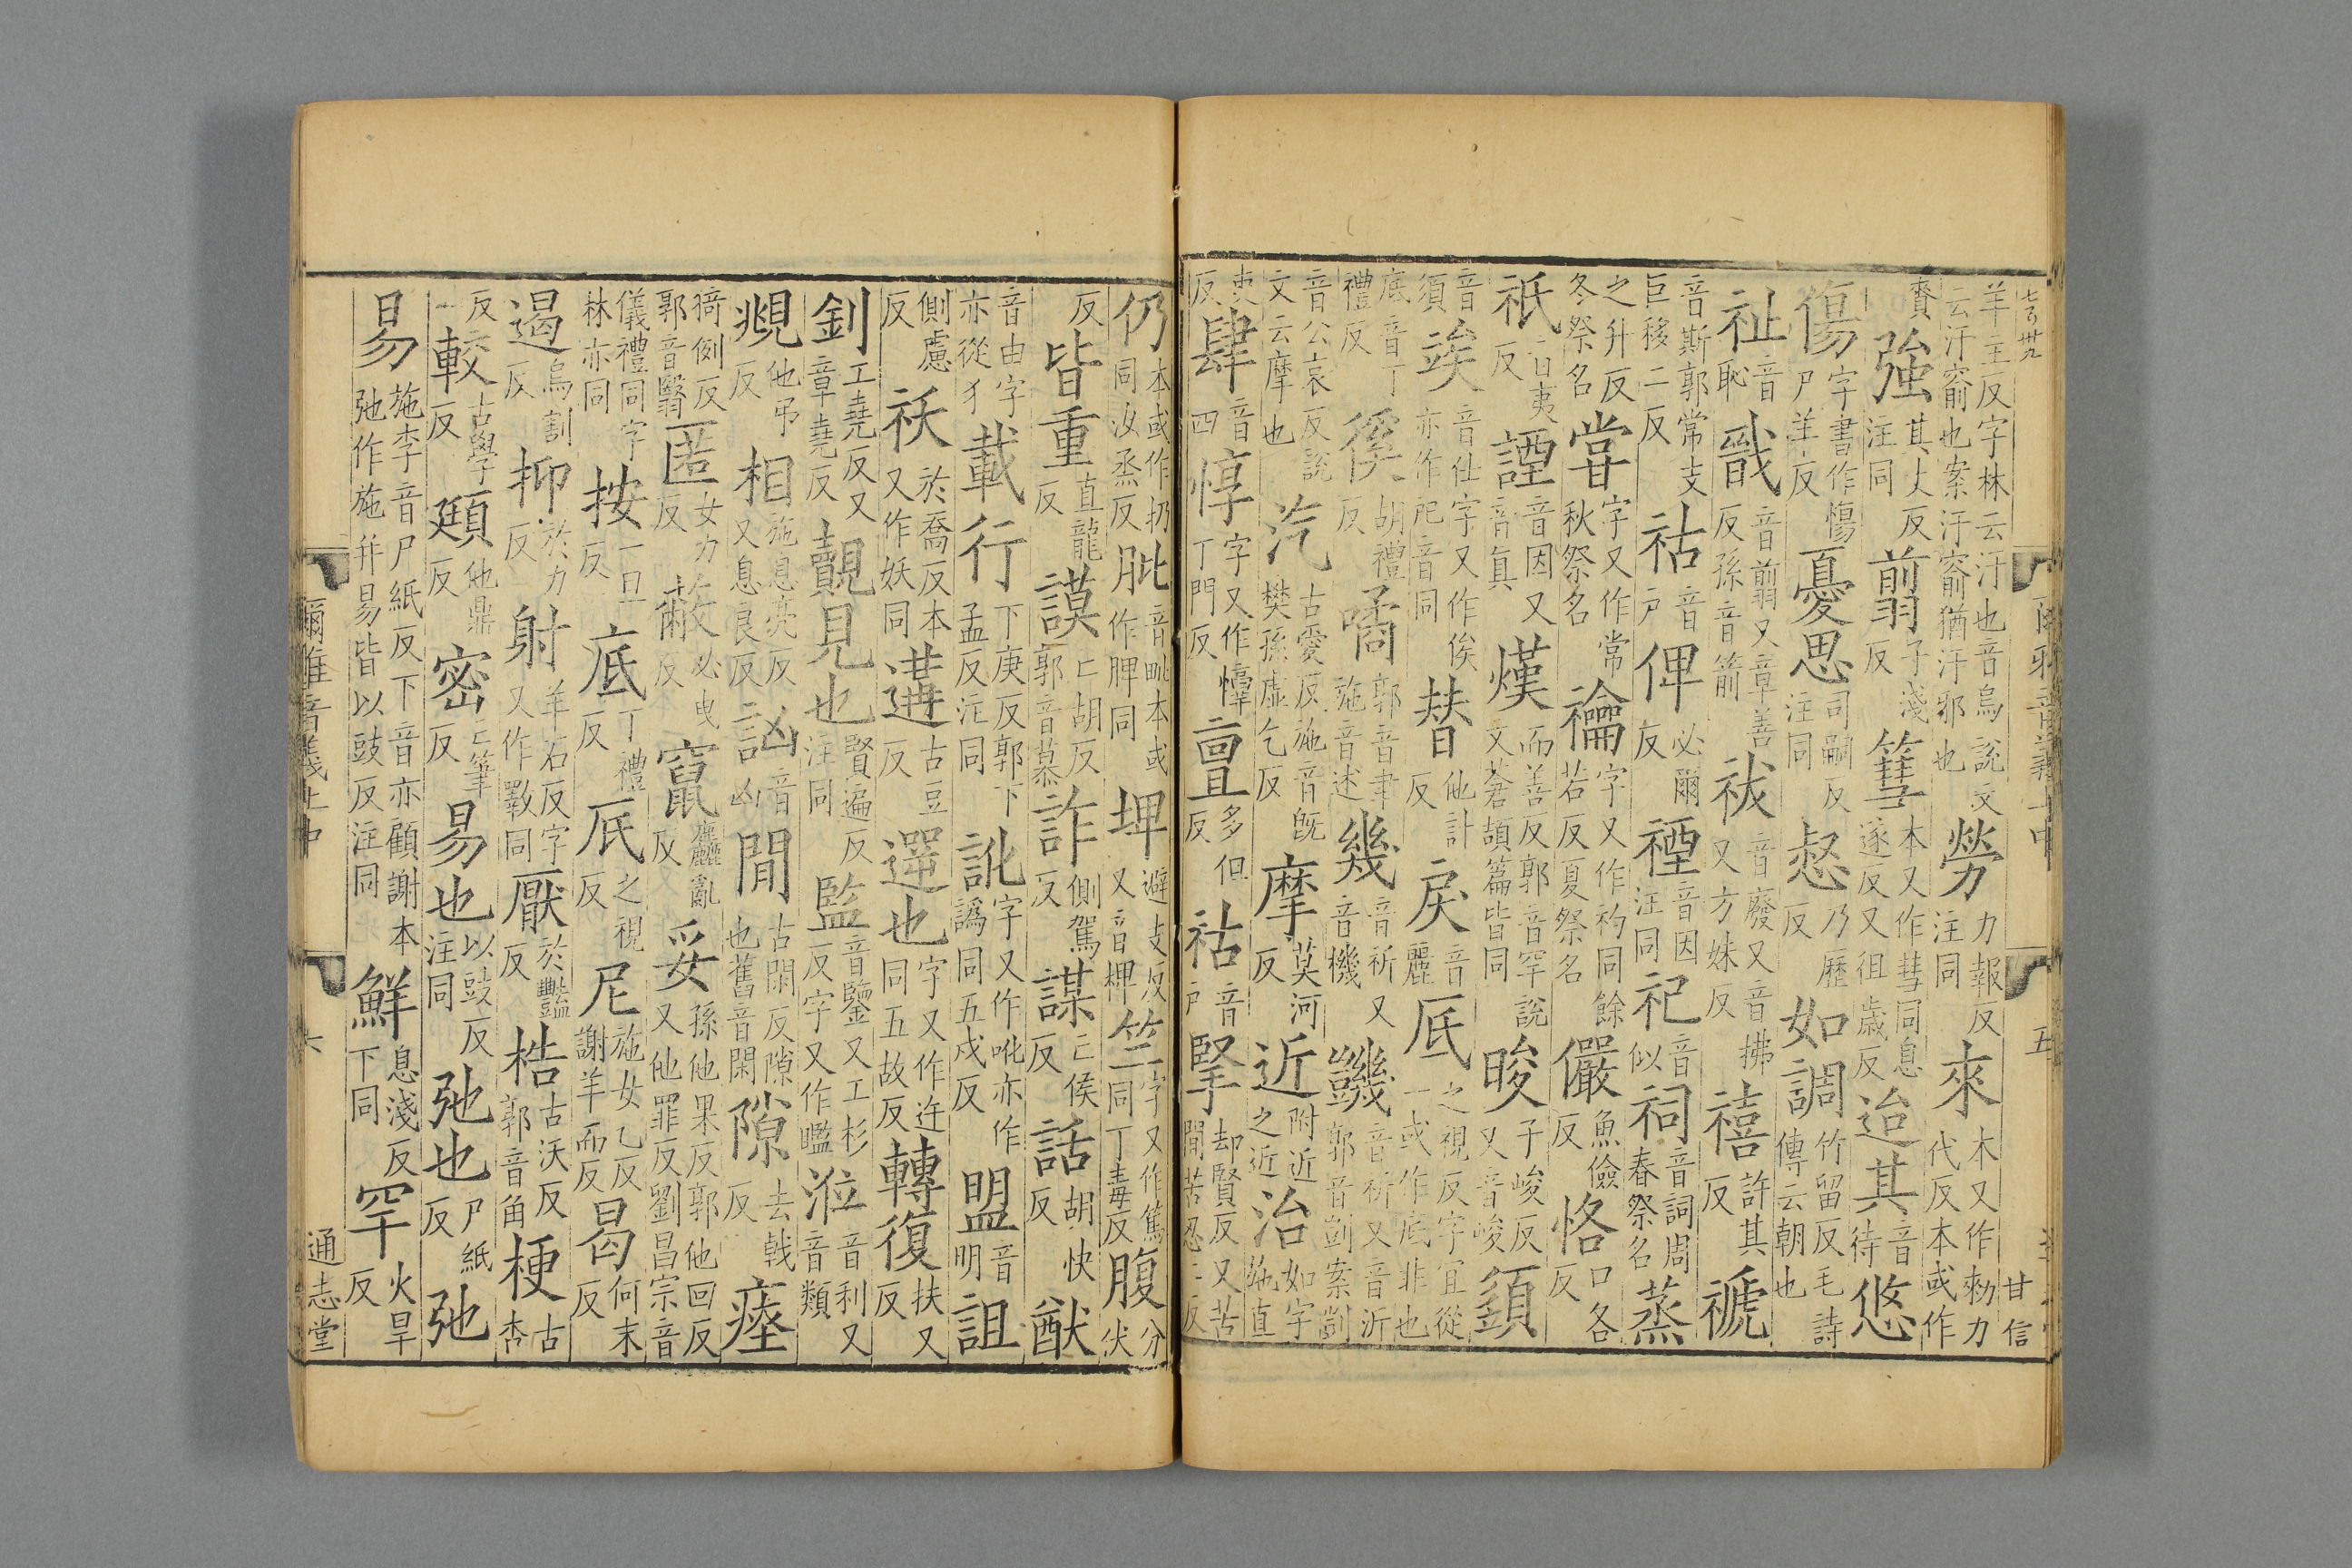 羊主反字林云汙也音烏說文云汙窬也案汙窬猶汙邪也勞力報反注同來本又作勑力代反本或作
賚強其丈反注同翦子淺反篲本又作彗同息遂反又徂歲反迨其音待悠
傷字書作慯尸羊反憂思司嗣反注同惄乃歷反如調竹留反毛詩傳云朝也
祉音恥戩音翦又章善反孫音箭祓音廢又音拂又方妹反禧許其反禠
音斯郭常支巨移二反祜音戶俾必爾反禋音因注同祀音似祠音詞周春祭名蒸
之升反冬祭名甞字又作常秋祭名禴字又作礿同餘若反夏祭名儼魚儉反恪口各反
祇音夷反諲音因又音真熯而善反郭音罕說文蒼頡篇皆同晙子峻反又音峻頷
音須竢音仕字又作俟亦作㞷音同替他計反戾音麗厎之視反字宜從一或作底非也
底音丁禮反徯胡禮反噊郭音聿施音述幾音祈又音機𧰙音祈又音沂郭音剴案剴
音公哀反說文云摩也汽古愛反施音旣樊孫虛乞反摩莫河反近附近之近治如字施直
吏反肆音四惇字又作㥫丁門反亶多但反祜音戶掔却賢反又苦間苦忍二反
仍本或作扔同汝烝反肶音毗本或作脾同埤避支反又音椑竺字又作篤同丁毒反腹分伏
反皆重直龍反謨亡胡反郭音慕詐側駕反謀亡侯反話胡快反猷
音由字亦從犭載行下庚反郭下孟反注同訛字又作吪亦作譌同五戈反盟音明詛
側慮反祅於喬反本又作妖同遘古豆反遻也字又作迕同五故反轉復扶又反
釗工堯反又章堯反覿見也賢遍反注同監音鑒又工杉反字又作㽉涖音利又音類
覜他弔反相施息亮反又息良反訩音凶間古閑反隙也舊音閑隙去戟反瘞
猗例反郭音翳匿女力反蔽必曳反竄麤亂反妥孫他果反郭他回反又他罪反劉昌宗音
儀禮同字林亦同按一旦反底丁禮反厎之視反尼施女乙反謝羊而反曷何末反
遏烏割反抑於力反射羊石反字又作斁同厭於豔反梏古沃反郭音角梗古杏
反較古學反頲他鼎反密亡筆反易也以豉反注同弛也尸紙反弛
易施李音尸紙反下音亦顧謝本弛作施并易皆以豉反注同鮮息淺反下同罕火旱反
爾雅音義上中
六
通志堂
五
甘信